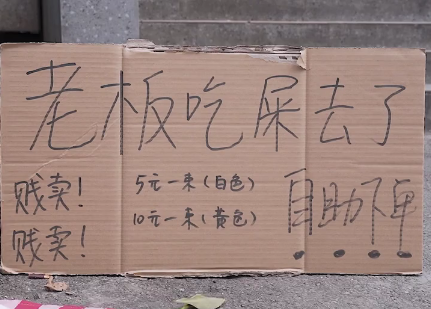 老板吃屎去了
贱卖！
贱卖！
5元一束（白色）
10元一束（黄色）
自助下单